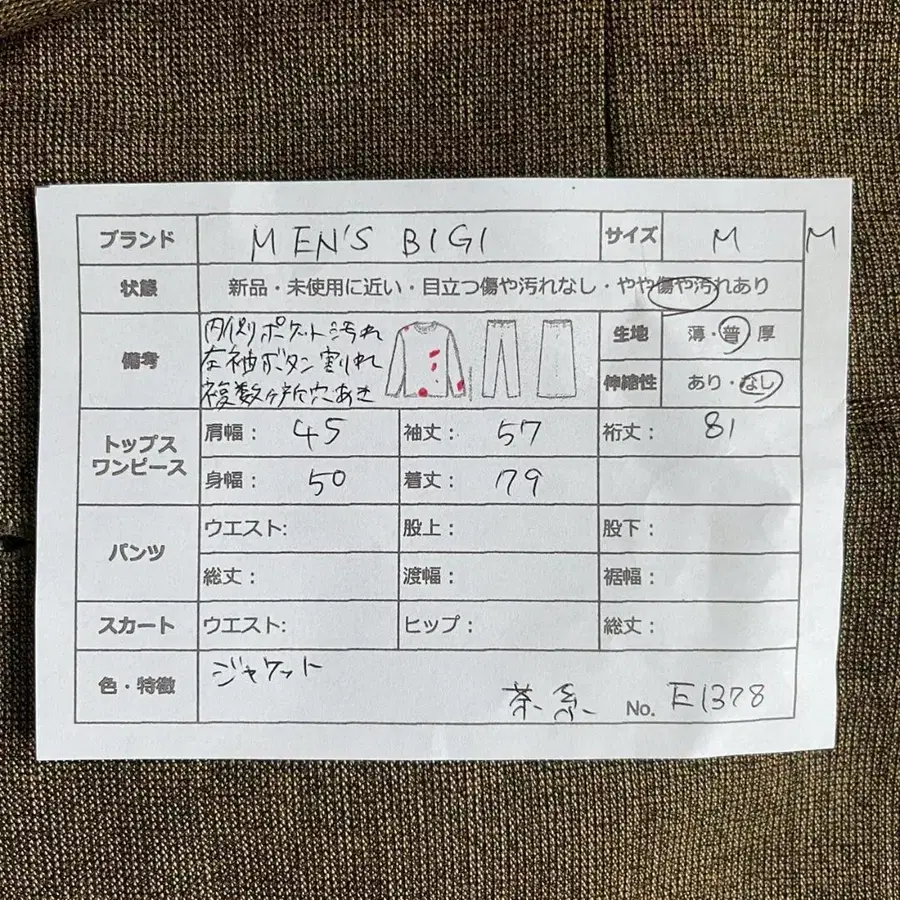 ブランド MEN'S BIGI サイズ M M
状態 新品・未使用に近い・目立つ傷や汚れなし・やや傷や汚れあり
備考 内側ポケット汚れ
左袖ボタン割れ
複数ヶ所穴あき
生地 薄・普・厚
伸縮性 あり・なし
トップス
ワンピース
肩幅: 45 袖丈: 57 裄丈: 81
身幅: 50 着丈: 79
パンツ
ウエスト: 股上: 股下:
総丈: 渡幅: 裾幅:
スカート ウエスト: ヒップ: 総丈:
色・特徴 ジャケット
茶系 No. E1378